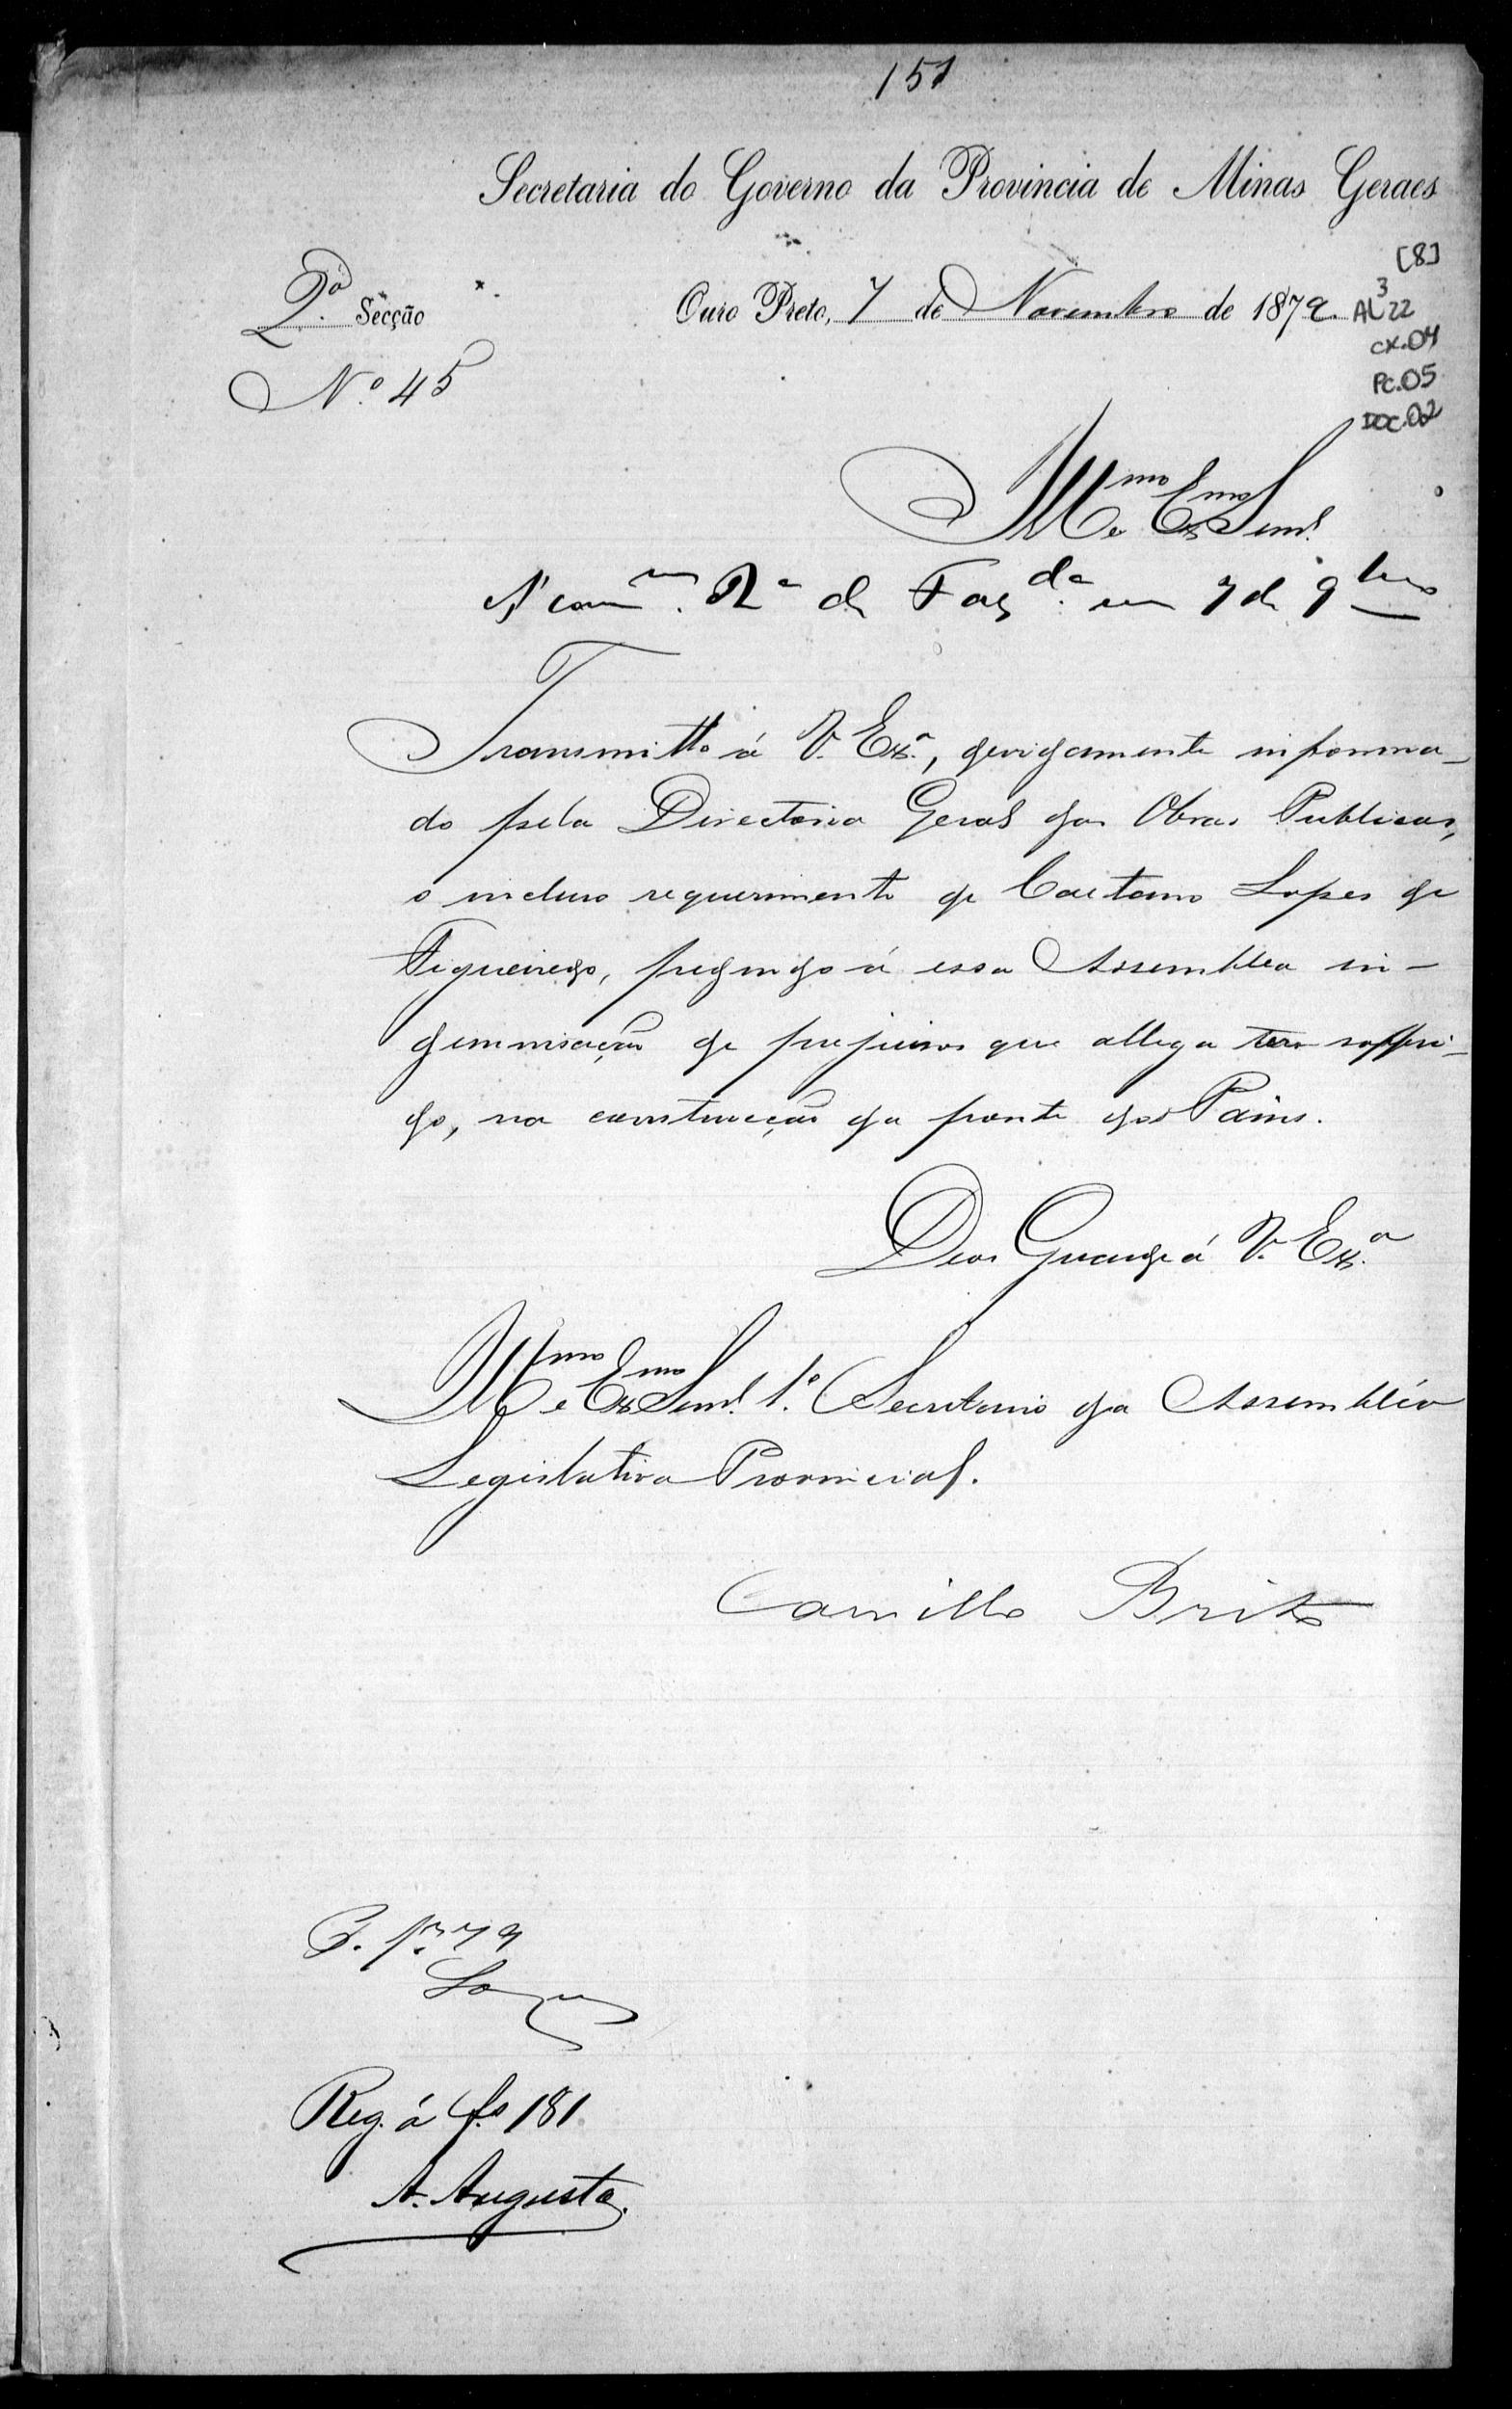 151
Secretaria do Governo da Provincia de Minas Geraes
[8]
2ª Secção
Ouro Preto, 7 de Novembro de 1879.
AL 3 22
CX.04
Nº 45
PC.05
DOC.02
Illmo e Exmo Senr.
A' comm. Rª de Fazda em 7 de 9bro
Transmitto á V. Exª, devidamente informa-
do pela Directoria Geral das Obras Publicas,
o incluso requerimento de Caetano Lopes de
Figueiredo, pedindo á essa Assembléa in-
demnisação de prejuisos que allega ter soffri-
do, na construcção da ponte dos Pains.
Deos Guarde á V. Exª
Illmo e Exmo Senr. 1º Secretario da Assembléa
Legislativa Provincial.
Camillo Brito
Reg. á fs 181
A. Augusto.